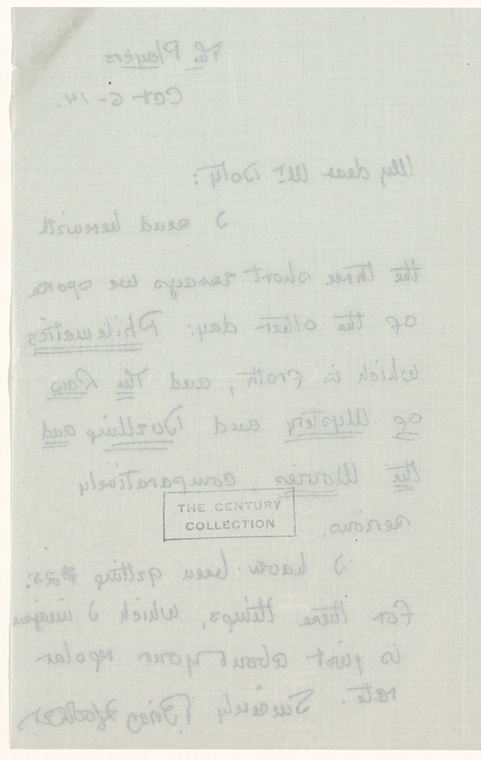 The Players
Oct-6-14.
My dear Mr. Doty:
I send herewith
the three short essays we spoke
of the other day: Philematics
which is froth, and The Law
of Mystery and Duelling and
the Movies, comparatively
serious.
THE CENTURY
COLLECTION
I have been getting $25.
for these things, which I imagine
is just about your
rate. Sincerely Brian Hooker